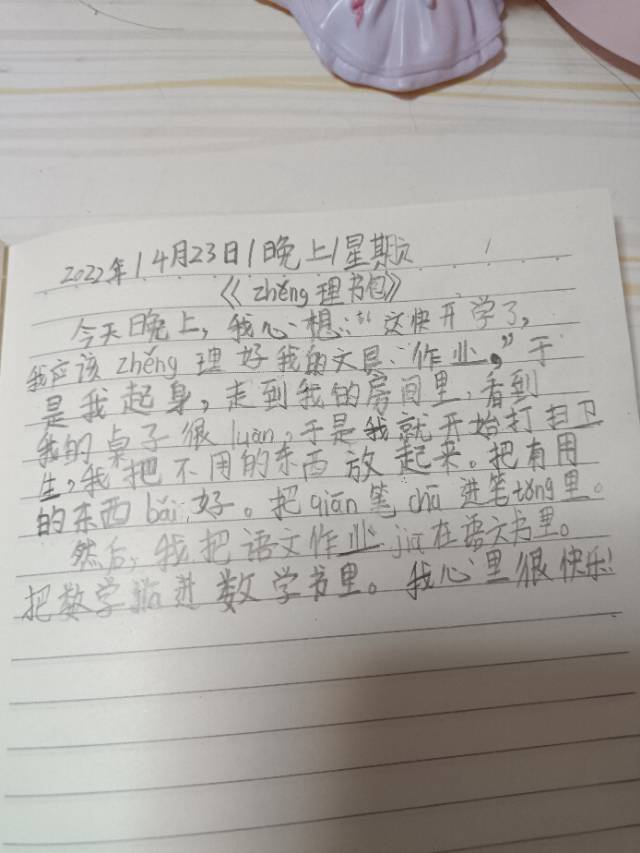 2022年|4月23日|晚上|星期六
《zhěng理书包》
今天晚上，我心想：“这快开学了，
我应该zhěng理好我的文具、作业。”于
是我起身，走到我的房间里，看到
我的桌子很luàn，于是我就开始打扫卫
生，我把不用的东西放起来。把有用
的东西bǎi好。把qiān笔chā进笔tǒng里。
然后，我把语文作业jiā在语文书里。
把数学jiā进数学书里。我心里很快乐！